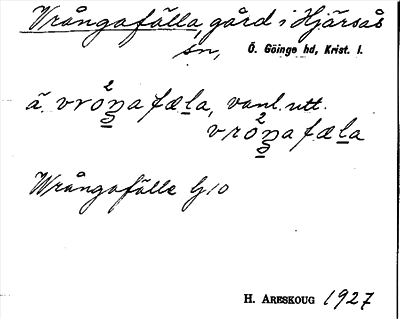 Vrångafälla, gård i Hjärsås
sn, Ö. Göinge hd, Krist. l.
ā vrōŋafæla, vanl. utt.
vrōŋafæla
Wrångafälle G10
H. ARESKOUG 1927